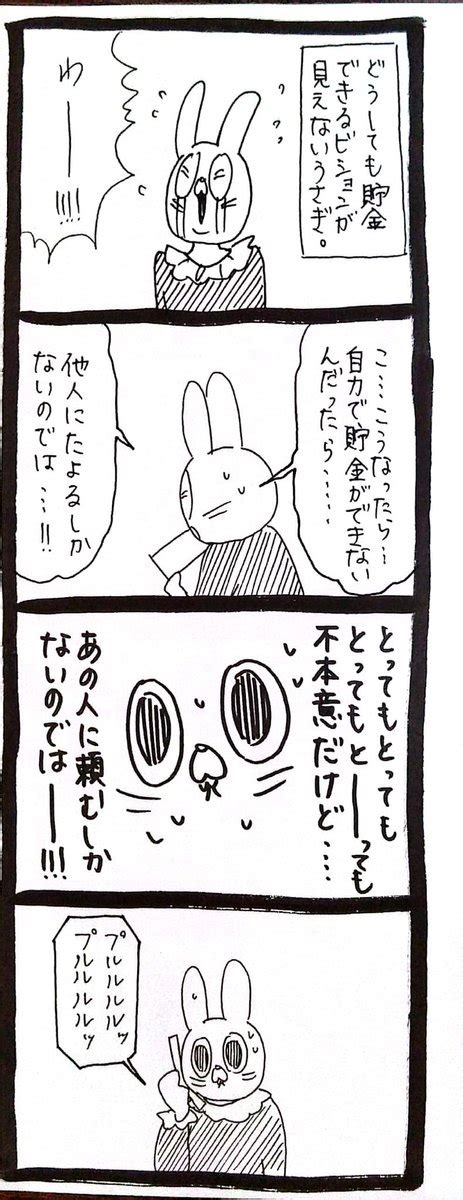 どうしても貯金
できるビジョンが
見えないうさぎ。
わー!!!!
こ…こうなったら…
自力で貯金ができない
んだったら……
他人にたよるしか
ないのでは…!!
とってもとっても
とってもとーっても
不本意だけど…
あの人に頼むしか
ないのではー!!!
プルルルルッ
プルルルルッ